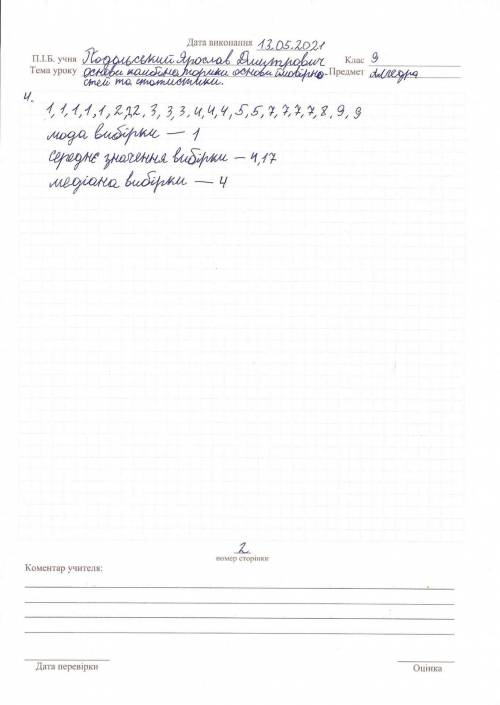 Дата виконання 13.05.2021
П.І.Б. учня Подольський Ярослав Дмитрович Клас 9
Тема уроку основи комбінаторики основи ймовірно- Предмет алгебра
стей та статистики.
4.
1, 1, 1, 1, 1, 2, 2, 2, 3, 3, 3, 4, 4, 4, 5, 5, 7, 7, 7, 7, 8, 9, 9
мода вибірки — 1
середнє значення вибірки – 4,17
медіана вибірки — 4
2
номер сторінки
Коментар учителя:
Дата перевірки Оцінка